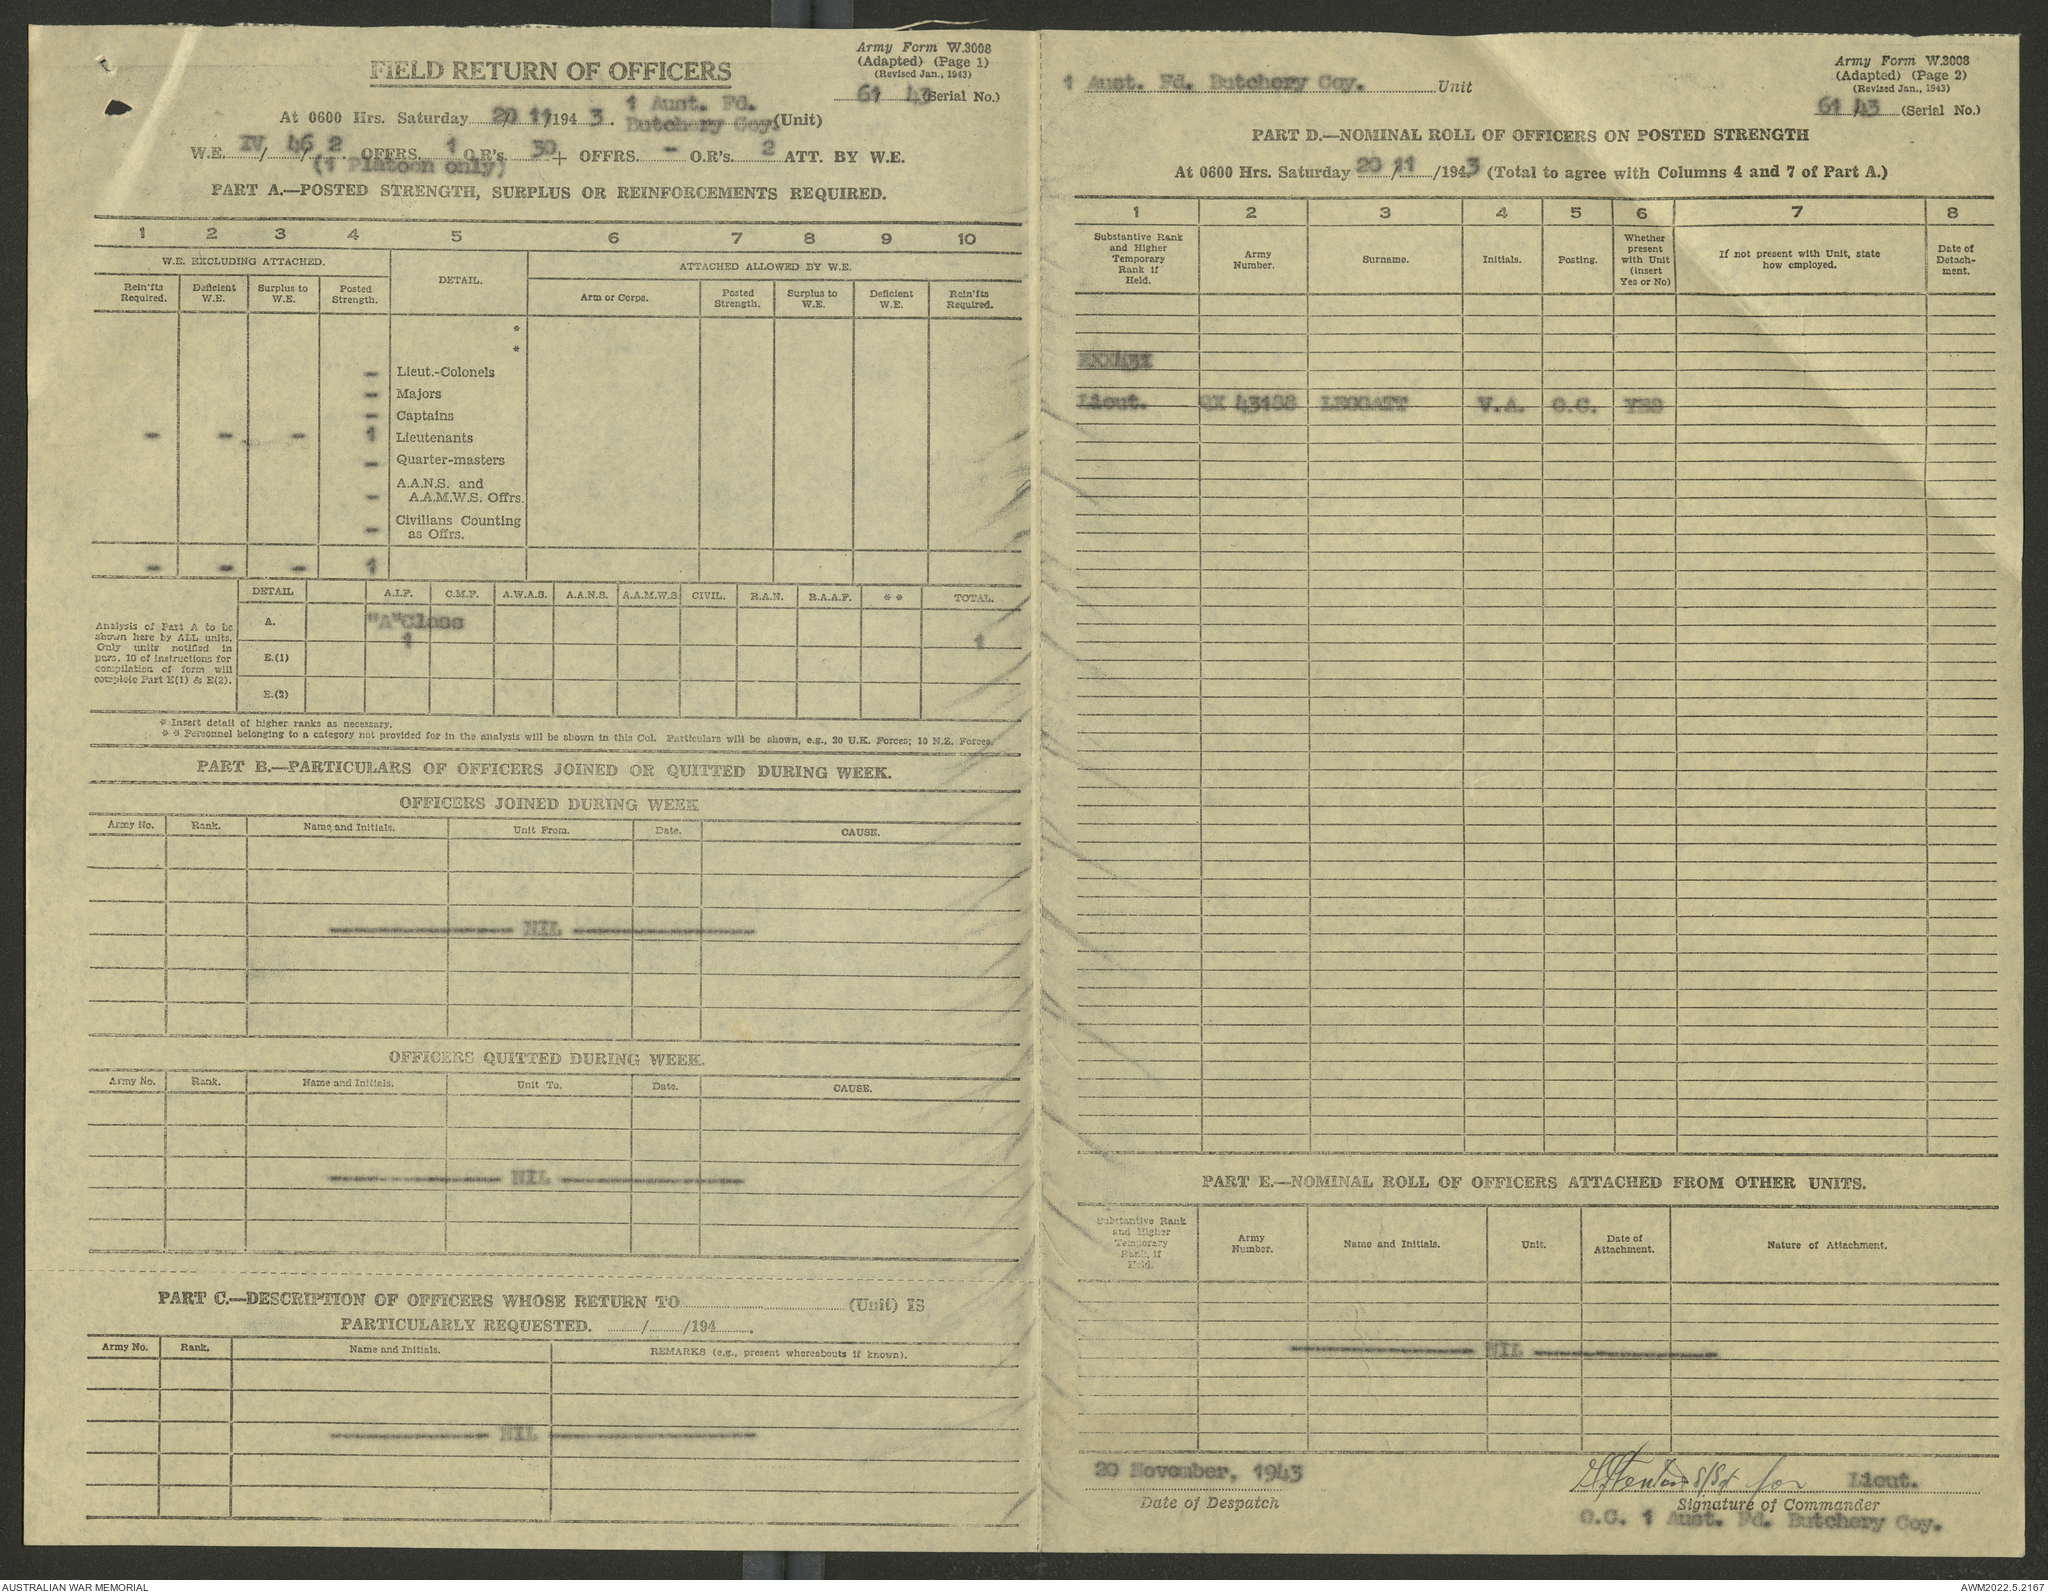 FIELD RETURN OF OFFICERS
Army Form W.3008
(Adapted) (Page 1)
(Revised Jan., 1943)
61 43 (Serial No.)
At 0600 Hrs. Saturday 20/11/1943. 1 Aust. Fd.
Butchery Coy. (Unit)
W.E. IV / 46 / 2. OFFRS. 1 O.R's. 30 + OFFRS. - O.R's. 2 ATT. BY W.E.
(1 Platoon only)
PART A.—POSTED STRENGTH, SURPLUS OR REINFORCEMENTS REQUIRED.
1 2 3 4 5 6 7 8 9 10
W.E. EXCLUDING ATTACHED. DETAIL. ATTACHED ALLOWED BY W.E.
Rein'fts Required. Deficient W.E. Surplus to W.E. Posted Strength. Arm or Corps. Posted Strength. Surplus to W.E. Deficient W.E. Rein'fts Required.
*
*
- Lieut.-Colonels
- Majors
- Captains
- - - 1 Lieutenants
- Quarter-masters
A.A.N.S. and
- A.A.M.W.S. Offrs.
Civilians Counting
- as Offrs.
- - - 1
DETAIL A.I.F. C.M.F. A.W.A.S. A.A.N.S. A.A.M.W.S. CIVIL. R.A.N. R.A.A.F. * * TOTAL.
Analysis of Part A to be
shown here by ALL units.
Only units notified in
para. 10 of instructions for
compilation of form will
complete Part E(1) & E(2).
A. "A" Class
1 1
E.(1)
E.(2)
* Insert detail of higher ranks as necessary.
* * Personnel belonging to a category not provided for in the analysis will be shown in this Col. Particulars will be shown, e.g., 20 U.K. Forces; 10 N.Z. Forces.
PART B.—PARTICULARS OF OFFICERS JOINED OR QUITTED DURING WEEK.
OFFICERS JOINED DURING WEEK
Army No. Rank. Name and Initials. Unit From. Date. CAUSE.
NIL
OFFICERS QUITTED DURING WEEK.
Army No. Rank. Name and Initials. Unit To. Date. CAUSE.
NIL
PART C.—DESCRIPTION OF OFFICERS WHOSE RETURN TO (Unit) IS
PARTICULARLY REQUESTED. / /194 .
Army No. Rank. Name and Initials. REMARKS (e.g., present whereabouts if known).
NIL
1 Aust. Fd. Butchery Coy. Unit
Army Form W.3008
(Adapted) (Page 2)
(Revised Jan., 1943)
61 43 (Serial No.)
PART D.—NOMINAL ROLL OF OFFICERS ON POSTED STRENGTH
At 0600 Hrs. Saturday 20/11/1943 (Total to agree with Columns 4 and 7 of Part A.)
1 2 3 4 5 6 7 8
Substantive Rank and Higher Temporary Rank if Held. Army Number. Surname. Initials. Posting. Whether present with Unit (insert Yes or No) If not present with Unit, state how employed. Date of Detach-ment.
Lieut. QX 43188 LEGGATT V.A. O.C. YES
PART E.—NOMINAL ROLL OF OFFICERS ATTACHED FROM OTHER UNITS.
Substantive Rank and Higher Temporary Rank, if Held. Army Number. Name and Initials. Unit. Date of Attachment. Nature of Attachment.
NIL
20 November, 1943
Date of Despatch
S/Sgt for Lieut.
Signature of Commander
O.C. 1 Aust. Fd. Butchery Coy.
AUSTRALIAN WAR MEMORIAL
AWM2022.5.2167